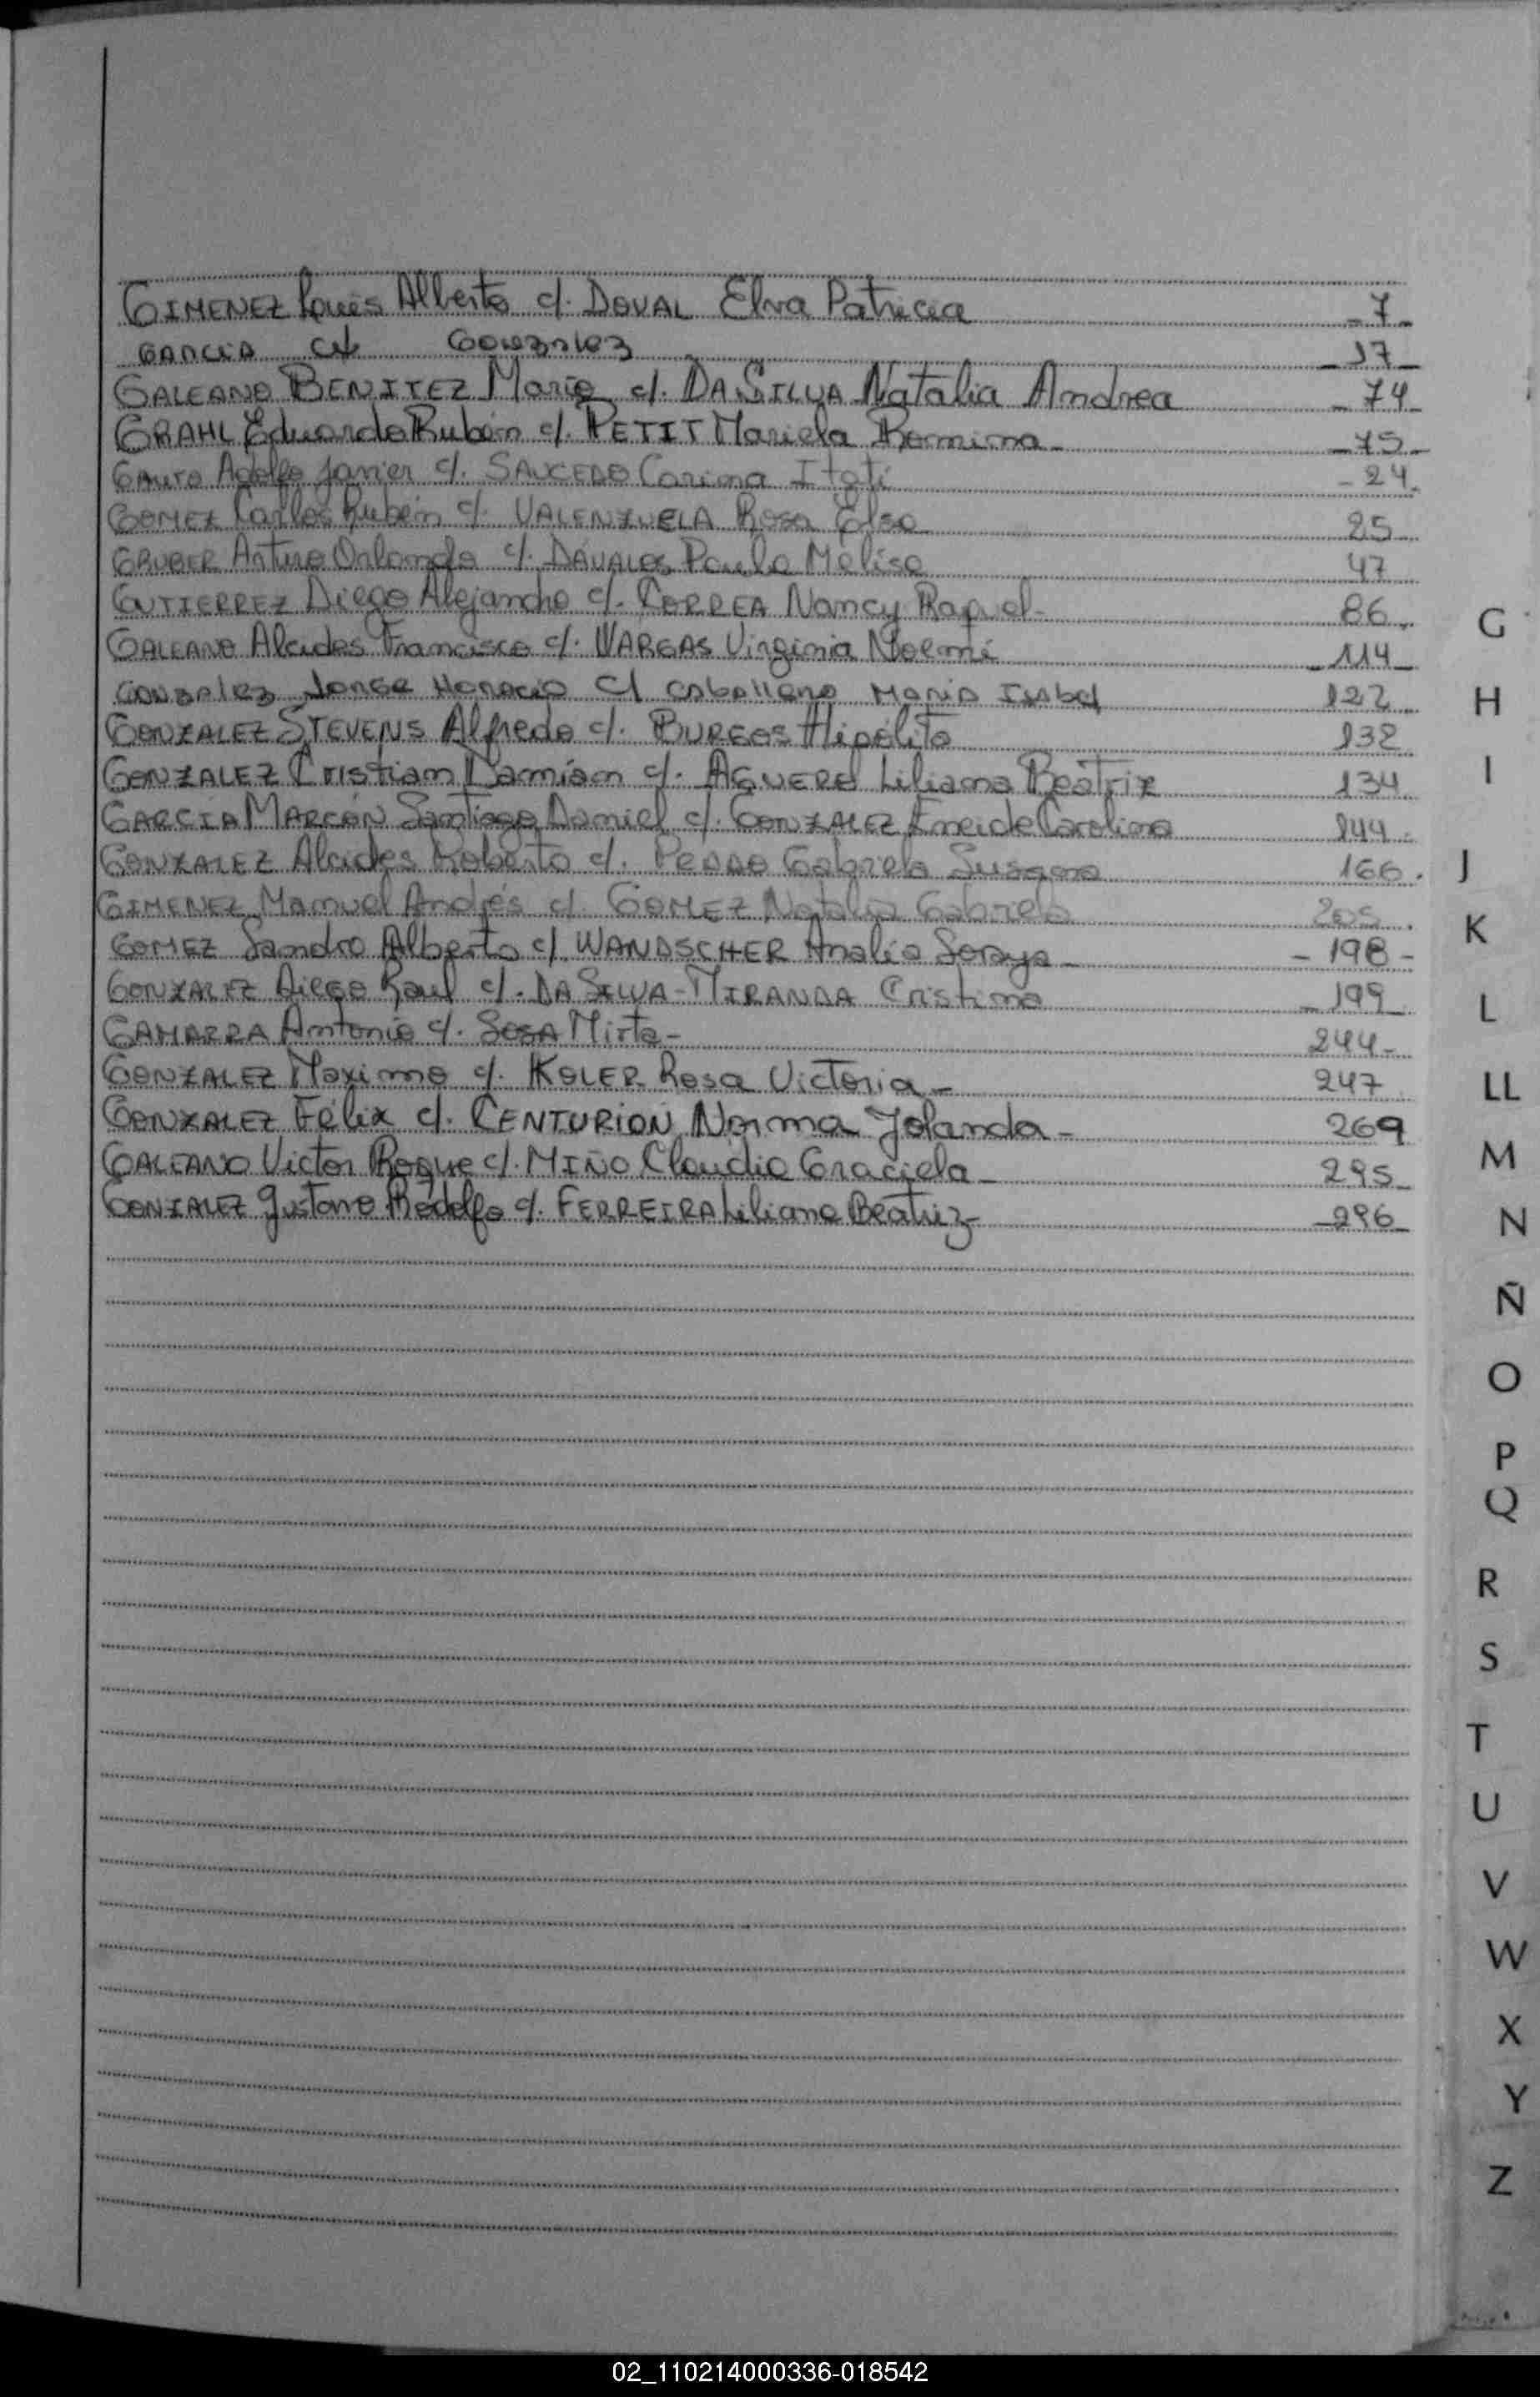 GIMENEZ Luis Alberto c/. DOVAL Elva Patricia 7
GARCIA c/ GONZALEZ 17
GALEANO BENITEZ Mario c/. DA SILVA Natalia Andrea 74
GRAHL Eduardo Rubén c/. PETIT Mariela Romina 75
GAUTO Adolfo Javier c/. SAUCEDO Carina Itatí 24
GOMEZ Carlos Rubén c/. VALENZUELA Rosa Elsa 25
GRUBER Arturo Orlando c/. DAVALOS Paula Melisa 47
GUTIERREZ Diego Alejandro c/. CORREA Nancy Raquel 86
GALEANO Alcides Francisco c/. VARGAS Virginia Noemí 114
GONZALEZ JORGE HORACIO c/ CABALLERO MARIA ISABEL 122
GONZALEZ STEVENS Alfredo c/. BURGOS Hipólito 132
GONZALEZ Cristian Damián c/. AGUERO Liliana Beatriz 134
GARCÍA MARCÓN Santiago Daniel c/. GONZALEZ Eneide Carolina 144
GONZALEZ Alcides Roberto c/. Gabriela Susana 166
GIMENEZ Manuel Andrés c/. GOMEZ Natalia Gabriela 205
GOMEZ Sandro Alberto c/. WANDSCHER Analia Soraya - 198 -
GONZALEZ Diego Raul c/. DA SILVA - MIRANDA Cristina 199
GAMARRA Antonio c/. SOSA Mirta - 244 -
GONZALEZ Maximo c/. KOLER Rosa Victoria - 247
GONZALEZ Félix c/. CENTURION Norma Yolanda - 269
GALEANO Victor Roque c/. MIÑO Claudia Graciela - 295
GONZALEZ Gustavo Rodolfo c/. FERREIRA Liliana Beatriz - 296
G
H
I
J
K
L
LL
M
N
Ñ
O
P
Q
R
S
T
U
V
W
X
Y
Z
02_110214000336-018542